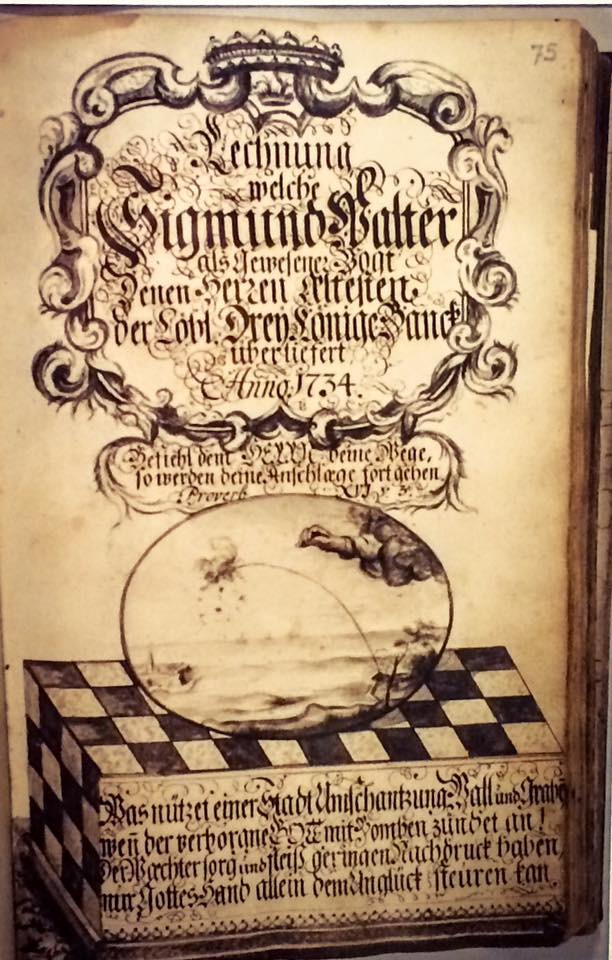 75
Rechnung
welche
Sigmund Walter
als Gewesener Vogt
Denen Herren Eltesten
der Löbl. Drey Könige Banck
überliefert
Anno 1734.
Befiehl dem HERRN deine Wege,
so werden deine Anschlæge fort gehen
Proverb XVI v. 3.
Was nützet einer Stadt Umschantzung Wall und Graben
wen̄ der verborgne GOTT mit Bomben zündet an!
Der Wæchter sorg und fleiß geringen Nachdruck haben,
nur Gottes Hand allein dem Unglück steuren kan